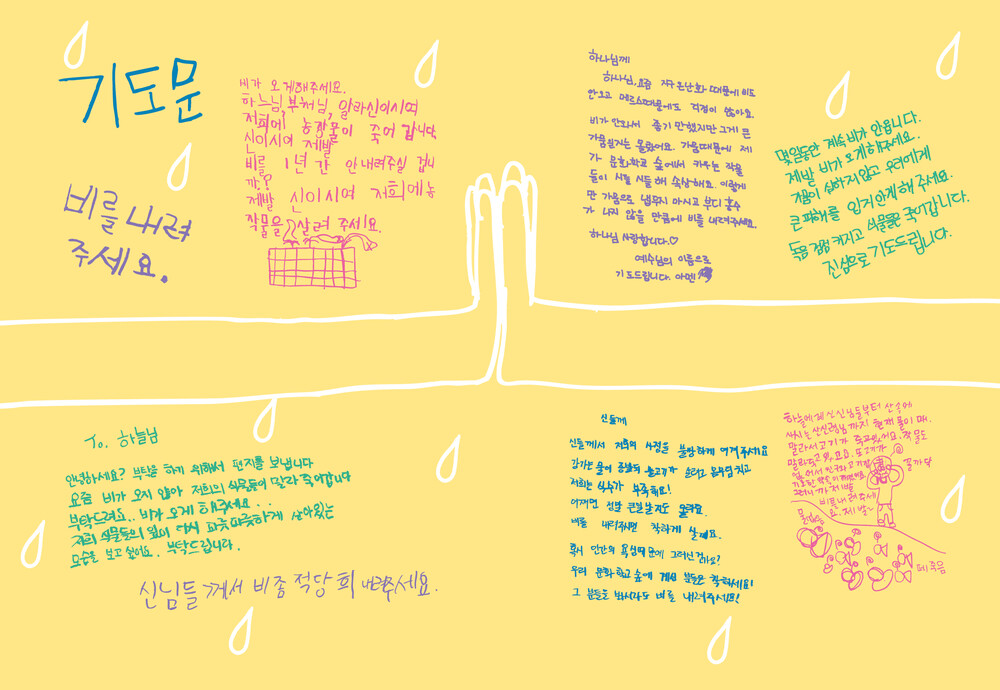 기도문
비를 내려
주세요.
비가 오게해주세요.
하느님,부처님, 알라신이시여
저희에 농작물이 죽어 갑니다.
신이시여 제발
비를 1년간 안내려주실 겁니
까?
제발 신이시여 저희에농
작물을 살려 주세요.
하나님께
하나님,요즘 지구온난화 때문에 비도
안오고 메르스때문에도 걱정이 많아요.
비가 안와서 좋기만했지만 그게 큰
가뭄일지는 몰랐어요. 가뭄때문에 제
가 문화학교 숲에서 키우는 작물
들이 시들 시들해 속상해요. 이렇게
만 가뭄으로 냅두지 마시고 부디 홍수
가 나지 않을 만큼에 비를 내려주세요.
하나님 사랑합니다.♡
예수님의 이름으로
기도드립니다. 아멘
몇일동안 계속비가 안옵니다.
제발 비가 오게해주세요.
가뭄이 심하지않고 우리에게
큰 피해를 입지 안게해 주세요.
녹음 점점 커지고 식물들은 죽어갑니다.
진심으로 기도드립니다.
To. 하늘님
안녕하세요? 부탁을 하기 위해서 편지를 보냅니다
요즘 비가 오지 않아 저희의 식물들이 말라죽어갑니다
부탁드려요.. 비가 오게 해주세요..
저희 식물들의 잎이 다시 파릇파릇하게 살아있는
모습을 보고싶어요.. 부탁드립니다.
신님들께서 비좀 적당히 내려주세요.
신들께
신들께서 저희의 사정을 불쌍하게 여겨주세요
강가는 물이 증발되 물고기가 살려고 몸부림치고
저희는 식수가 부족해요!
어쩌면 정말 큰일날지도 몰라요.
비를 내려주시면 착하게 살게요.
혹시 인간의 욕심때문에 그러신건가요?
우리 문화학교 숲에 계신 분들은 착하세요!
그 분들을 봐서라도 비를 내려주세요!
하늘에 계신 신님들부터 산속에
사시는 산신령님까지 현재 물이
말라서고기가 죽고있어요. 작물도
말라죽고 있고요. 또
비를내려주세
요. 제발~
꼴까닥
떼죽음